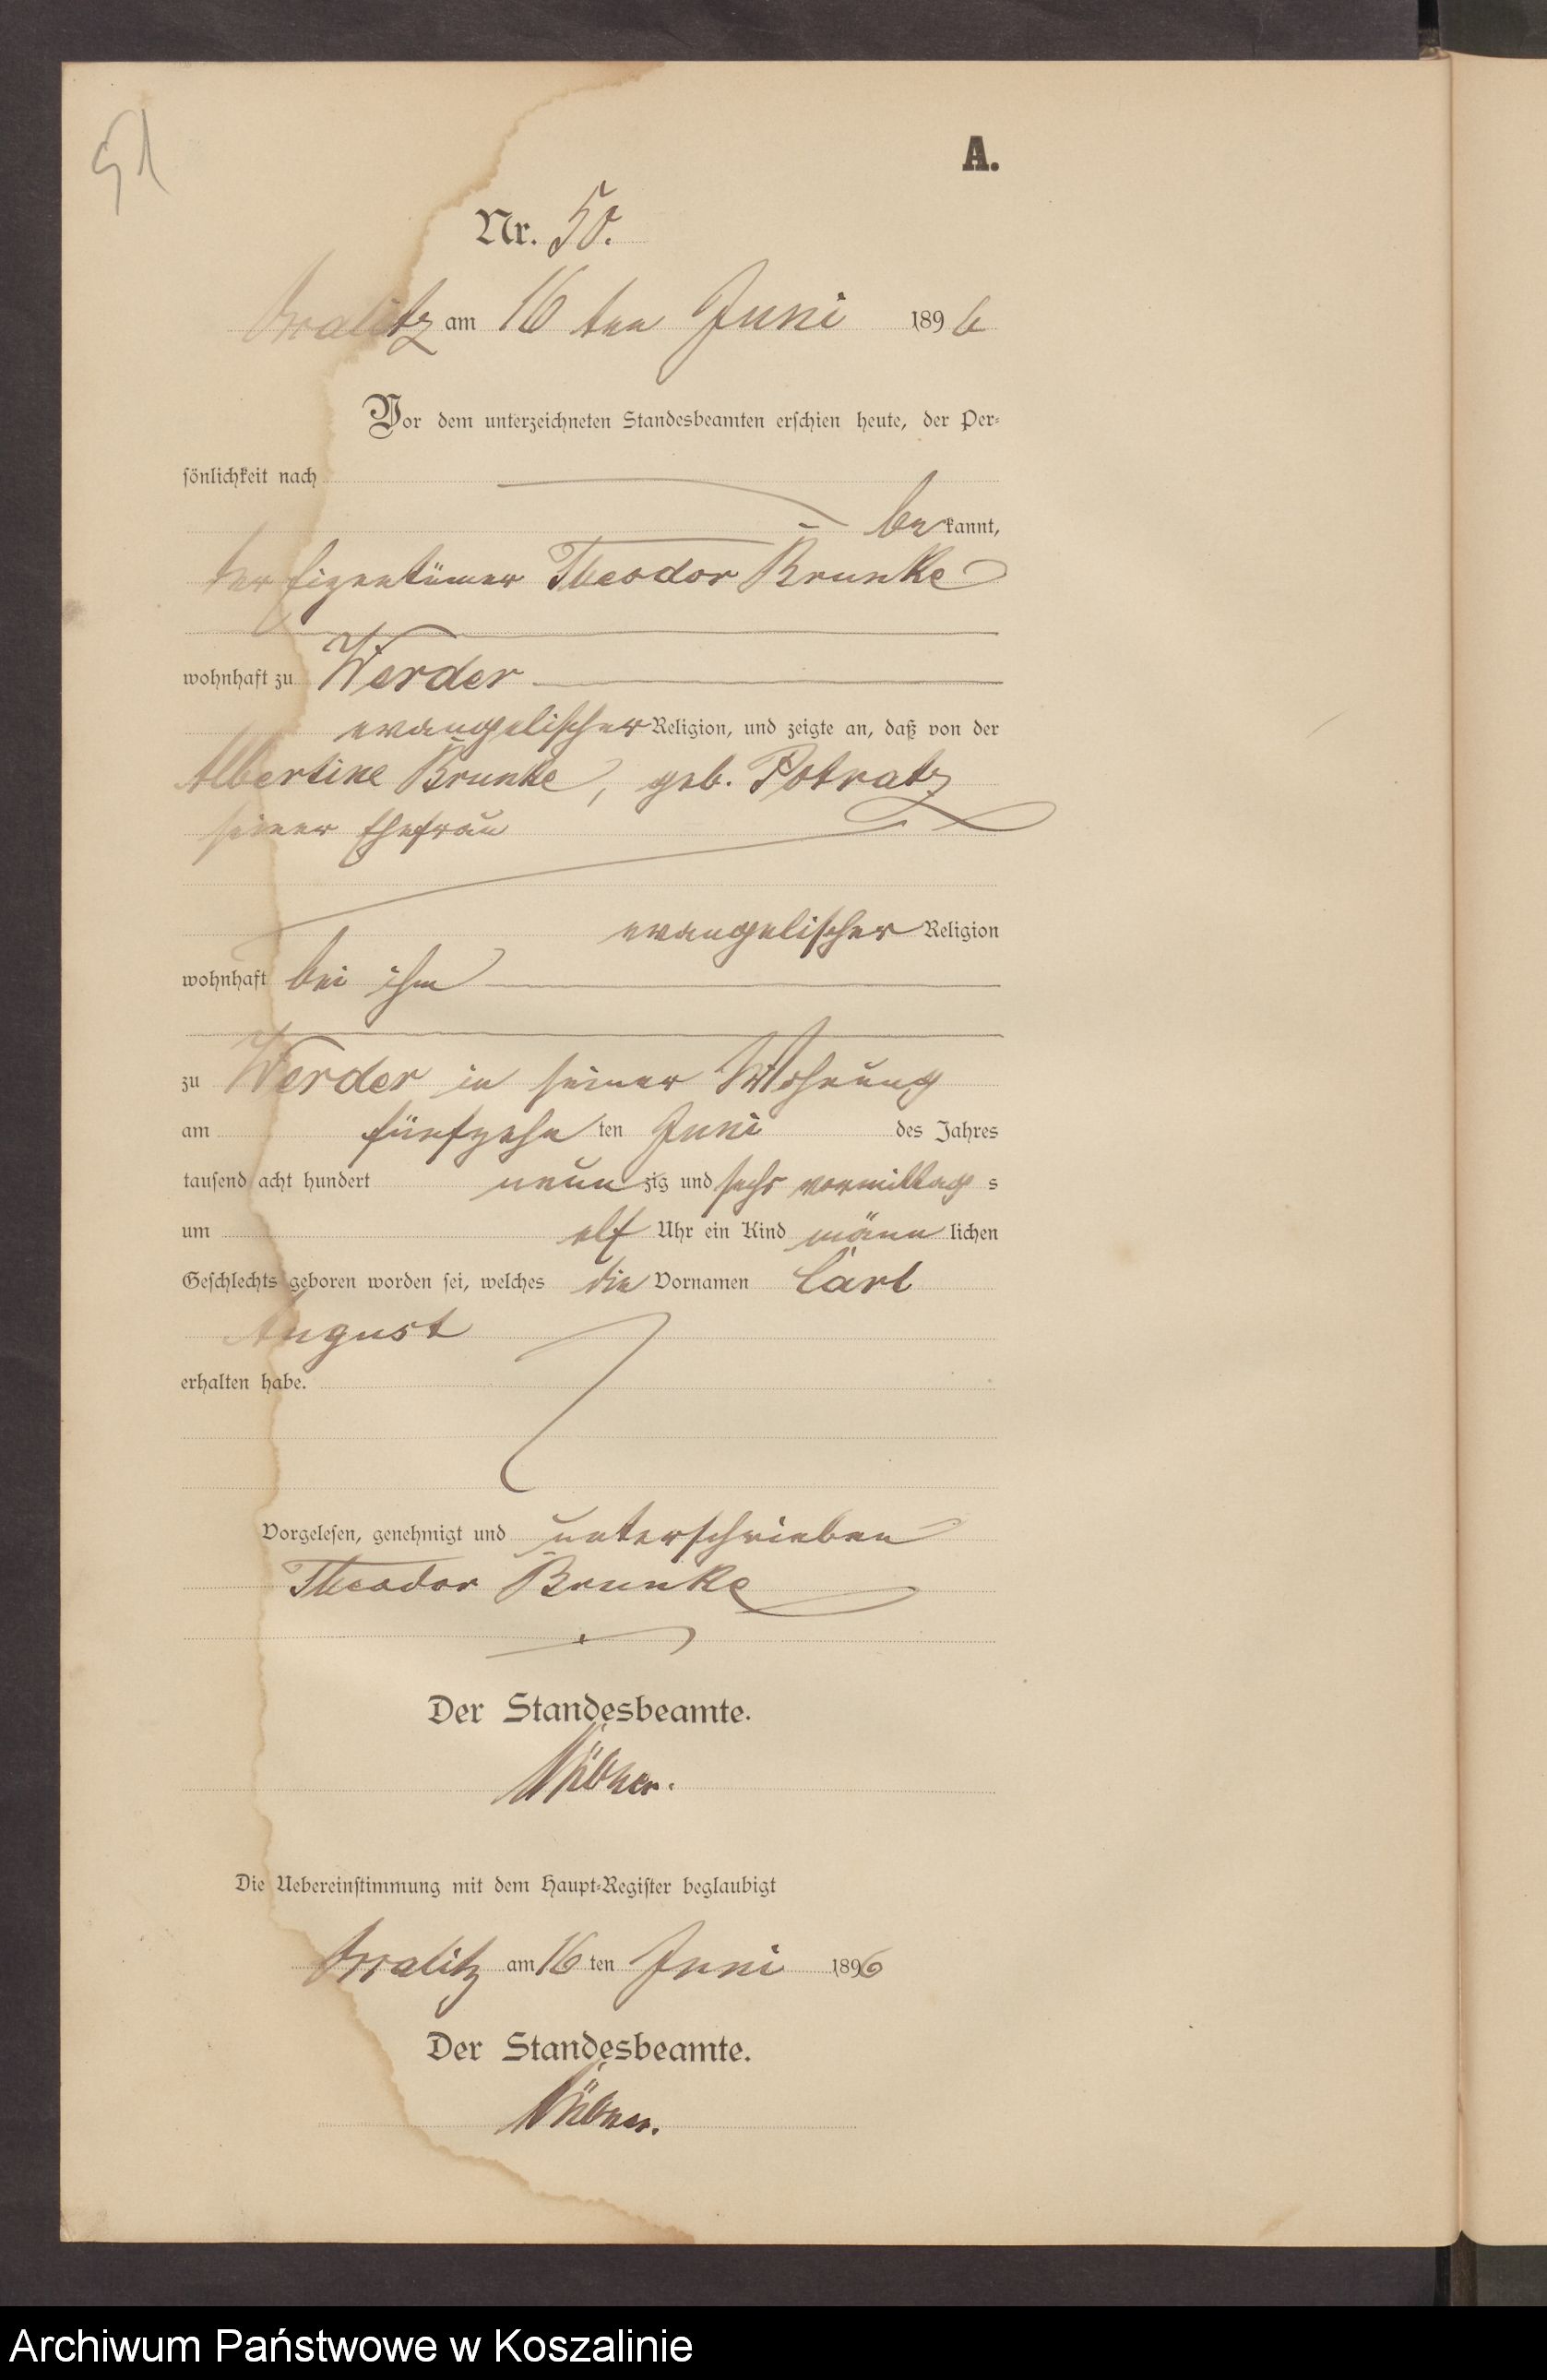 51
A.
Nr. 50.
am 16 ten Juni 1896
Vor dem unterzeichneten Standesbeamten erschien heute, der Per-
sönlichkeit nach
be kannt,
der Eigentümer Theodor Brunke
wohnhaft zu Werder
evangelischer Religion, und zeigte an, daß von der
Albertine Brunke, geb. Potratz
seiner Ehefrau
evangelischer Religion
wohnhaft bei ihm
zu Werder in seiner Wohnung
am fünfzehn ten Juni des Jahres
tausend acht hundert neun zig und sechs vormittag s
um elf Uhr ein Kind männ lichen
Geschlechts geboren worden sei, welches die Vornamen Carl
August
erhalten habe.
Vorgelesen, genehmigt und unterschrieben
Theodor Brunke
Der Standesbeamte.
Die Uebereinstimmung mit dem Haupt-Register beglaubigt
am 16 ten Juni 1896
Der Standesbeamte.
Archiwum Państwowe w Koszalinie